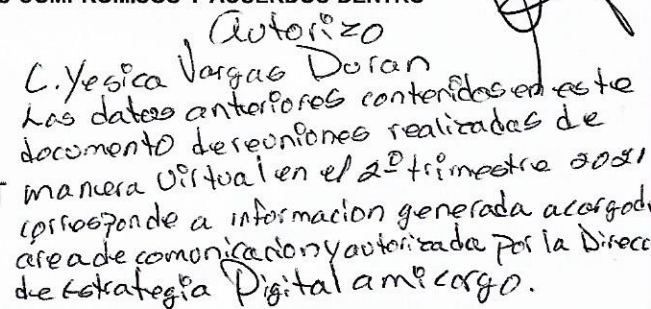 COMPROMISOS Y ACUERDOS DENTRO
Autorizo
C. Yesica Vargas Duran
Los datos anteriores contenidos en este
documento de reuniones realizadas de
manera virtual en el 2º trimestre 2021
corresponde a informacion generada a cargo d
area de comunicacion y autorizada por la Direcc
de Estrategia Digital a mi cargo.